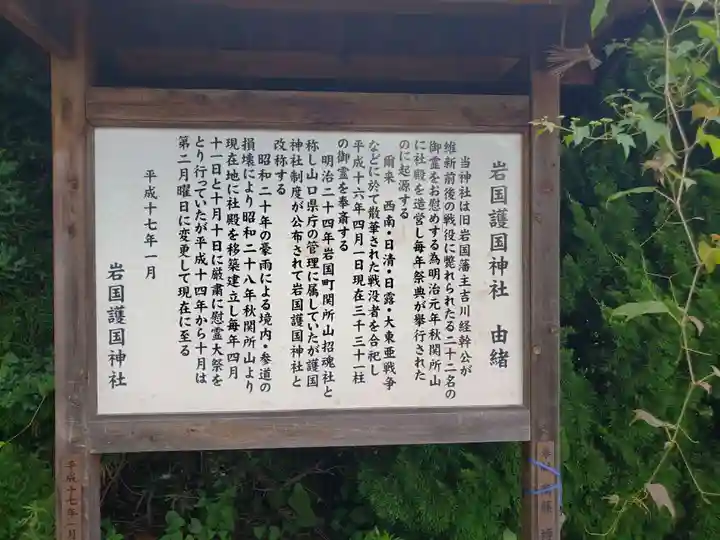 岩国護国神社　由緒
当神社は旧岩国藩主吉川経幹公が
維新前後の戦役に斃れられたる二十二名の
御霊をお慰めする為明治元年秋関所山
に社殿を造営し毎年祭典が挙行された
のに起源する
爾来　西南・日清・日露・大東亜戦争
などに於て散華された戦没者を合祀し
平成十六年四月一日現在三千三十一柱
の御霊を奉斎する
明治二十四年岩国町関所山招魂社と
称し山口県庁の管理に属していたが護国
神社制度が公布されて岩国護国神社と
改称する
昭和二十年の豪雨による境内・参道の
損壊により昭和二十八年秋関所山より
現在地に社殿を移築建立し毎年四月
十一日と十月十日に厳粛に慰霊大祭を
とり行っていたが平成十四年から十月は
第二月曜日に変更して現在に至る
平成十七年一月
岩国護国神社
平成十七年一月